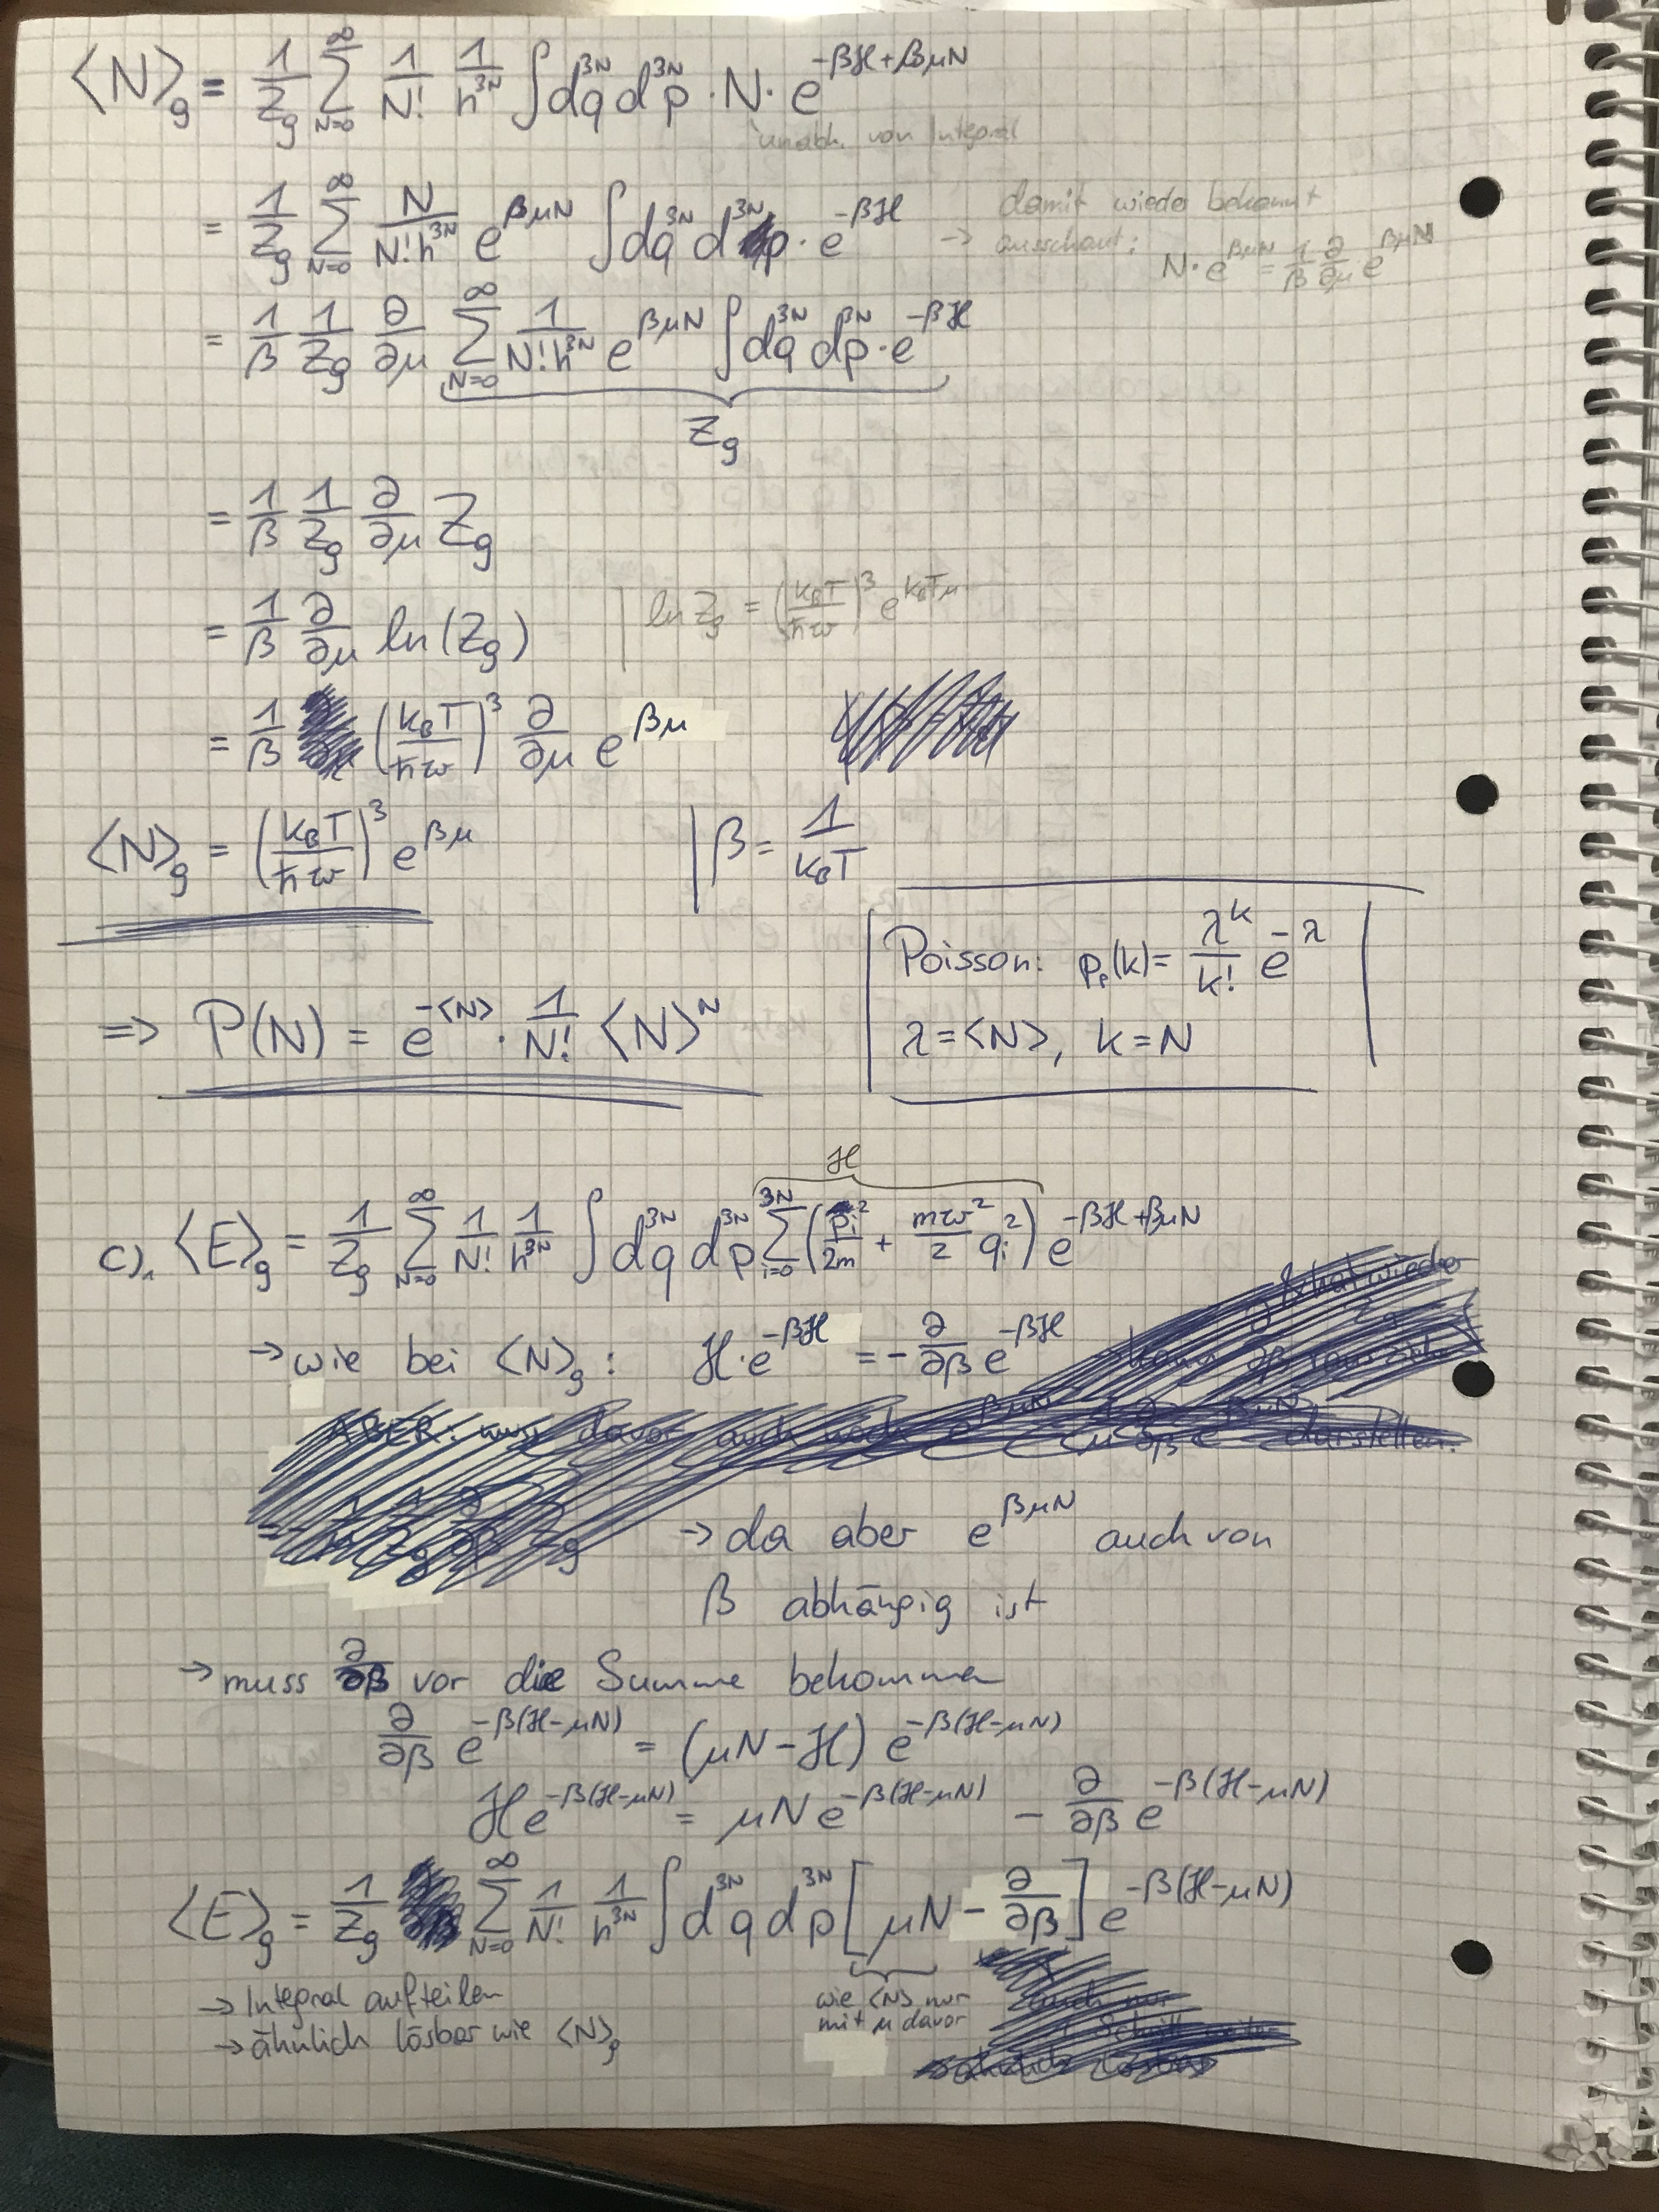 ⟨N⟩_g = 1/Z_g ∑_{N=0}^{∞} 1/N! 1/h^{3N} ∫dq^{3N} dp^{3N} · N · e^{-βℋ+βμN}
unabh. von Integral
= 1/Z_g ∑_{N=0}^{∞} N/(N! h^{3N}) e^{βμN} ∫dq^{3N} d^{3N}p · e^{-βℋ} → damit wieder bekannt
ausschaut: N·e^{βμN} = 1/β ∂/∂μ e^{βμN}
= 1/β 1/Z_g ∂/∂μ ∑_{N=0}^{∞} 1/(N! h^{3N}) e^{βμN} ∫dq^{3N} dp^{3N} · e^{-βℋ}
Z_g
= 1/β 1/Z_g ∂/∂μ Z_g
= 1/β ∂/∂μ ln(Z_g) | ln Z_g = (k_BT/ħω)^3 e^{k_BTμ}
= 1/β (k_BT/ħω)^3 ∂/∂μ e^{βμ}
⟨N⟩_g = (k_BT/ħω)^3 e^{βμ} | β = 1/k_BT
Poisson: p_p(k) = λ^k/k! e^{-λ}
λ = ⟨N⟩, k = N
⇒ P(N) = e^{-⟨N⟩} · 1/N! ⟨N⟩^N
ℋ
c), ⟨E⟩_g = 1/Z_g ∑_{N=0}^{∞} 1/N! 1/h^{3N} ∫dq^{3N} dp^{3N} ∑_{i=0}^{3N} (p_i^2/2m + mω^2/2 q_i^2) e^{-βℋ+βμN}
→ wie bei ⟨N⟩_g : ℋ·e^{-βℋ} = - ∂/∂β e^{-βℋ}
ABER: muss davor auch noch e^{βμN} darstellen.
→ da aber e^{βμN} auch von
β abhängig ist
→ muss ∂/∂β vor die Summe bekommen
∂/∂β e^{-β(ℋ-μN)} = (μN-ℋ) e^{-β(ℋ-μN)}
ℋe^{-β(ℋ-μN)} = μNe^{-β(ℋ-μN)} - ∂/∂β e^{-β(ℋ-μN)}
⟨E⟩_g = 1/Z_g ∑_{N=0}^{∞} 1/N! 1/h^{3N} ∫dq^{3N} dp^{3N} [μN - ∂/∂β] e^{-β(ℋ-μN)}
→ Integral aufteilen
→ ähnlich lösbar wie ⟨N⟩_g
wie ⟨N⟩ nur
mit μ davor